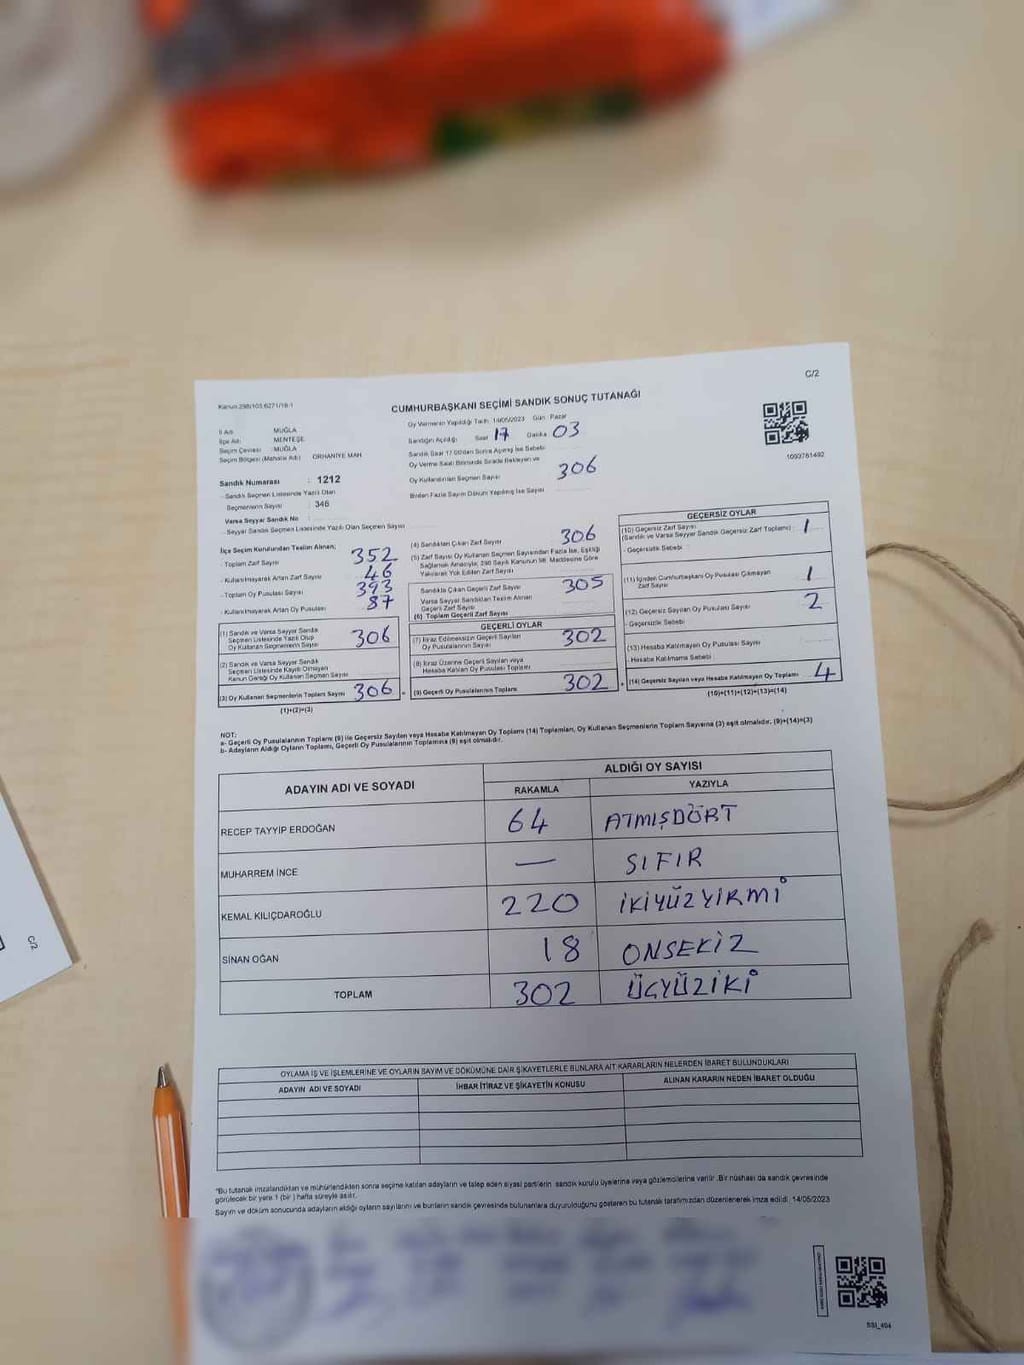 C/2
Kanun 298/103.6271/18-1
CUMHURBAŞKANI SEÇİMİ SANDIK SONUÇ TUTANAĞI
İl Adı : MUĞLA
İlçe Adı : MENTEŞE
Seçim Çevresi : MUĞLA
Seçim Bölgesi (Mahalle Adı) : ORHANİYE MAH
Sandık Numarası : 1212
- Sandık Seçmen Listesinde Yazılı Olan
Seçmenlerin Sayısı : 346
Varsa Seyyar Sandık No
- Seyyar Sandık Seçmen Listesinde Yazılı Olan Seçmen Sayısı
Oy Vermenin Yapıldığı Tarih 14/05/2023 Gün : Pazar
Sandığın Açıldığı Saat 17 Dakika 03
Sandık Saat 17.00'den Sonra Açılmış İse Sebebi
Oy Verme Saati Bitiminde Sırada Bekleyen ve
Oy Kullandırılan Seçmen Sayısı 306
Birden Fazla Sayım Döküm Yapılmış İse Sayısı
1093761492
İlçe Seçim Kurulundan Teslim Alınan;
- Toplam Zarf Sayısı 352
- Kullanılmayarak Artan Zarf Sayısı 46
- Toplam Oy Pusulası Sayısı 393
- Kullanılmayarak Artan Oy Pusulası 87
(1) Sandık ve Varsa Seyyar Sandık
Seçmen Listesinde Yazılı Olup
Oy Kullanan Seçmenlerin Sayısı 306
(2) Sandık ve Varsa Seyyar Sandık
Seçmen Listesinde Kayıtlı Olmayan
Kanun Gereği Oy Kullanan Seçmen Sayısı
(3) Oy Kullanan Seçmenlerin Toplam Sayısı 306
(1)+(2)=(3)
(4) Sandıktan Çıkan Zarf Sayısı 306
(5) Zarf Sayısı Oy Kullanan Seçmen Sayısından Fazla İse, Eşitliği
Sağlamak Amacıyla; 298 Sayılı Kanunun 98. Maddesine Göre
Yakılarak Yok Edilen Zarf Sayısı
Sandıkta Çıkan Geçerli Zarf Sayısı 305
Varsa Seyyar Sandıktan Teslim Alınan
Geçerli Zarf Sayısı
(6) Toplam Geçerli Zarf Sayısı
GEÇERLİ OYLAR
(7) İtiraz Edilmeksizin Geçerli Sayılan
Oy Pusulalarının Sayısı 302
(8) İtiraz Üzerine Geçerli Sayılan veya
Hesaba Katılan Oy Pusulası Toplamı
(9) Geçerli Oy Pusulalarının Toplamı 302
GEÇERSİZ OYLAR
(10) Geçersiz Zarf Sayısı
(Sandık ve Varsa Seyyar Sandık Geçersiz Zarf Toplamı) : 1
- Geçersizlik Sebebi
(11) İçinden Cumhurbaşkanı Oy Pusulası Çıkmayan
Zarf Sayısı 1
(12) Geçersiz Sayılan Oy Pusulası Sayısı 2
- Geçersizlik Sebebi
(13) Hesaba Katılmayan Oy Pusulası Sayısı
- Hesaba Katılmama Sebebi
(14) Geçersiz Sayılan veya Hesaba Katılmayan Oy Toplamı 4
(10)+(11)+(12)+(13)=(14)
NOT:
a- Geçerli Oy Pusulalarının Toplamı (9) ile Geçersiz Sayılan veya Hesaba Katılmayan Oy Toplamı (14) Toplamları, Oy Kullanan Seçmenlerin Toplam Sayısına (3) eşit olmalıdır. (9)+(14)=(3)
b- Adayların Aldığı Oyların Toplamı, Geçerli Oy Pusulalarının Toplamına (9) eşit olmalıdır.
ADAYIN ADI VE SOYADI
ALDIĞI OY SAYISI
RAKAMLA YAZIYLA
RECEP TAYYİP ERDOĞAN 64 ATMIŞDÖRT
MUHARREM İNCE — SIFIR
KEMAL KILIÇDAROĞLU 220 İKİYÜZYİRMİ
SİNAN OĞAN 18 ONSEKİZ
TOPLAM 302 ÜÇYÜZİKİ
OYLAMA İŞ VE İŞLEMLERİNE VE OYLARIN SAYIM VE DÖKÜMÜNE DAİR ŞİKAYETLERLE BUNLARA AİT KARARLARIN NELERDEN İBARET BULUNDUKLARI
ADAYIN ADI VE SOYADI İHBAR İTİRAZ VE ŞİKAYETİN KONUSU ALINAN KARARIN NEDEN İBARET OLDUĞU
*Bu tutanak imzalandıktan ve mühürlendikten sonra seçime katılan adayların ve talep eden siyasi partilerin sandık kurulu üyelerine veya gözlemcilerine verilir. Bir nüshası da sandık çevresinde
görülecek bir yere 1 (bir ) hafta süreyle asılır.
Sayım ve döküm sonucunda adayların aldığı oyların sayılarını ve bunların sandık çevresinde bulunanlara duyurulduğunu gösteren bu tutanak tarafımızdan düzenlenerek imza edildi. 14/05/2023
SSI_404
C/2